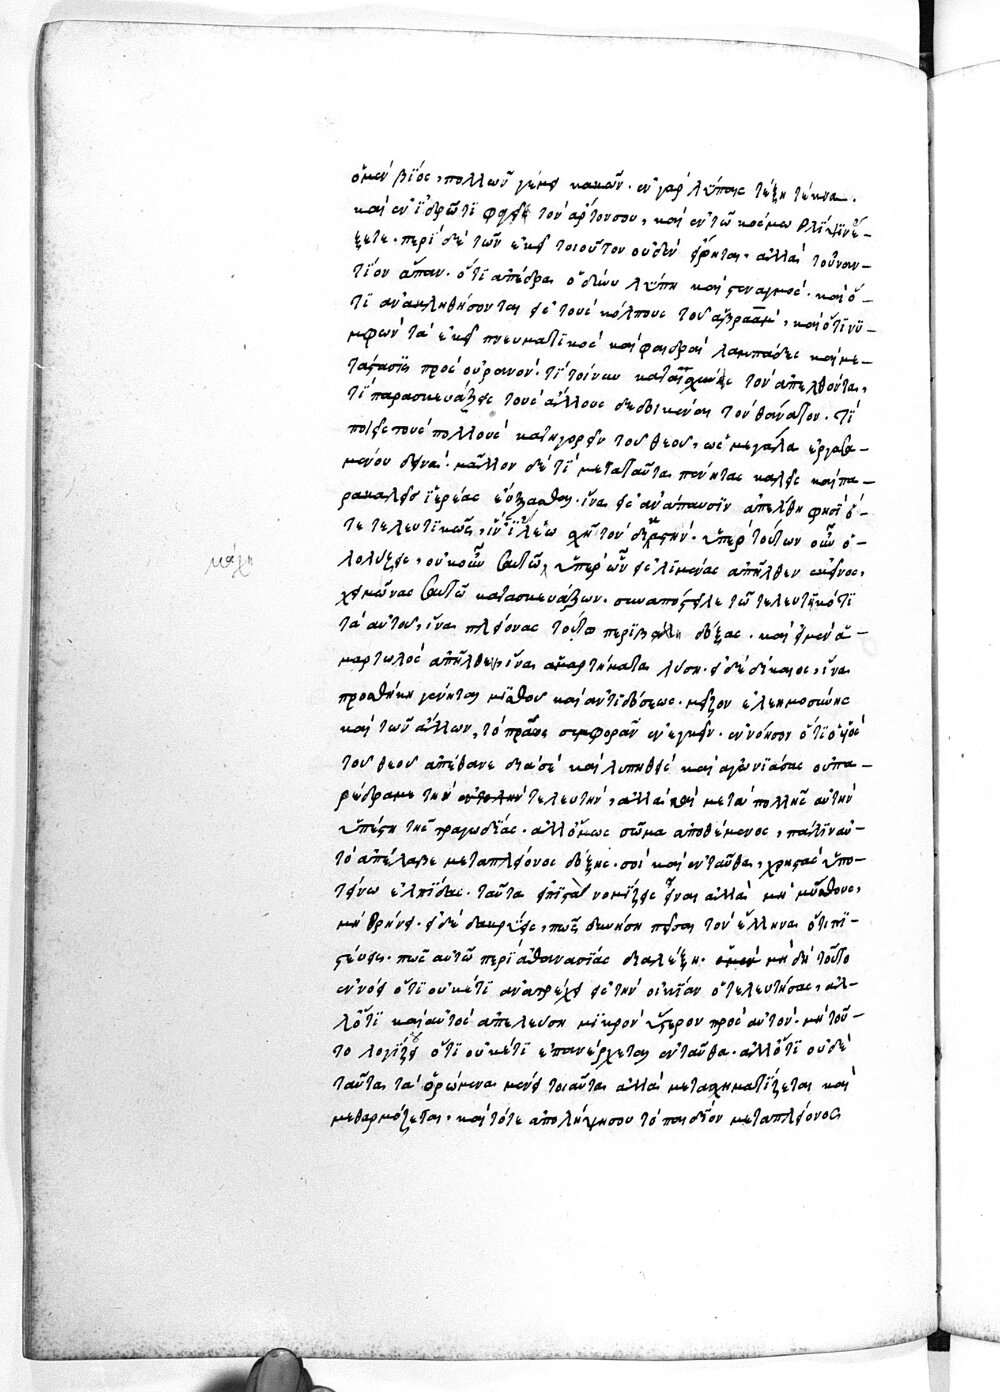 ὁ μὲν βίος, πολλῶν γέμει κακῶν. ἐν γὰρ λύπαις τέξη τέκνα.
καὶ ἐν ἱδρῶτι φαγῆ τὸν ἄρτον σου, καὶ ἐν τῶ κόσμω θλίψιν ἕ-
ξετε. περὶ δὲ τῶν ἐκεῖ τοιοῦτον οὐδὲν εἴρηται, ἀλλὰ τοὐναν-
τίον ἅπαν. ὅτι ἀπέδρα ὀδύνη λύπη καὶ στεναγμός. καὶ ὅ-
τι ἀνακληθήσονται εἰς τοὺς κόλπους τοῦ ἀβραάμ, καὶ ὅτι νυ-
μφῶν τὰ ἐκεῖ πνευματικὸς καὶ φαιδραὶ λαμπάδες καὶ με-
τάστασις πρὸς οὐρανόν. τί τοίνυν καταισχύνεις τὸν ἀπελθόντα,
τί παρασκευάζεις τοὺς ἄλλους δεδοικέναι τὸν θάνατον. τί
ποιεῖς τοὺς πολλοὺς κατηγορεῖν τοῦ θεοῦ, ὡς μεγάλα ἐργασα-
μένου δεινά. μᾶλλον δὲ τί μετὰ ταῦτα πένητας καλεῖς καὶ πα-
ρακαλεῖς ἱερέας εὔξασθαι. ἵνα εἰς ἀνάπαυσιν ἀπέλθη φησὶ ὁ
τετελευτικὼς, ἵν' ἵλεω σχῆ τὸν δικαστήν. ὑπὲρ τούτων οὖν ὀ-
λολύζεις, οὐκοῦν ἑαυτῶ, ὑπὲρ ὧν εἰς λιμένας ἀπῆλθεν ἐκεῖνος,
χειμῶνας ἑαυτῶ κατασκευάζων. συναπόστειλε τῶ τελευτηκότι
τὰ αὐτοῦ, ἵνα πλείονας τούτω περιβάλη δόξας. καὶ εἰ μὲν ἁ-
μαρτωλὸς ἀπῆλθεν, ἵνα ἁμαρτήματα λύση. εἰ δὲ δίκαιος, ἵνα
προσθήκη γένηται μισθοῦ καὶ ἀντιδόσεως. μεῖζον ἐλεημοσύνης
καὶ τῶν ἄλλων, τὸ πράως συμφορὰν ἐνεγκεῖν. ἐννόησον ὅτι ὁ υἱὸς
τοῦ θεοῦ ἀπέθανε διὰ σὲ καὶ λυπηθεὶς καὶ ἀγωνιάσας οὐ πα-
ρέδραμε τὴν τελευτὴν, ἀλλὰ καὶ μετὰ πολλῆς αὐτὴν
ὑπέστη τῆς τραγωδίας. ἀλλ' ὅμως σῶμα ἀποθέμενος, πάλιν αὐ-
τὸ ἀπέλαβε μετὰ πλείονος δόξης. σοὶ καὶ ἐνταῦθα, χρηστὰς ὑπο-
τείνω ἐλπίδας. ταῦτα εἰ πιστὰ νομίζεις εἶναι ἀλλὰ μὴ μύθους,
μὴ θρήνει. εἰ δὲ δακρύεις, πῶς δυνήση πεῖσαι τὸν ἕλληνα ὅτι πι-
στεύεις. πῶς αὐτῶ περὶ ἀθανασίας διαλέξη. μὴ δὴ τοῦτο
ἐννόει ὅτι οὐκέτι ἀνατρέχει εἰς τὴν οἰκίαν ὁ τελευτήσας, ἀλ-
λ' ὅτι καὶ αὐτὸς ἀπελεύση μικρὸν ὕστερον πρὸς αὐτόν. μὴ τοῦ-
το λογίζου ὅτι οὐκέτι ἐπανέρχεται ἐνταῦθα. ἀλλ' ὅτι οὐδὲ
ταῦτα τὰ ὁρώμενα μένει τοιαῦτα ἀλλὰ μετασχηματίζεται καὶ
μεθαρμόζεται. καὶ τότε ἀπολήψη σου τὸ παιδίον μετὰ πλείονος